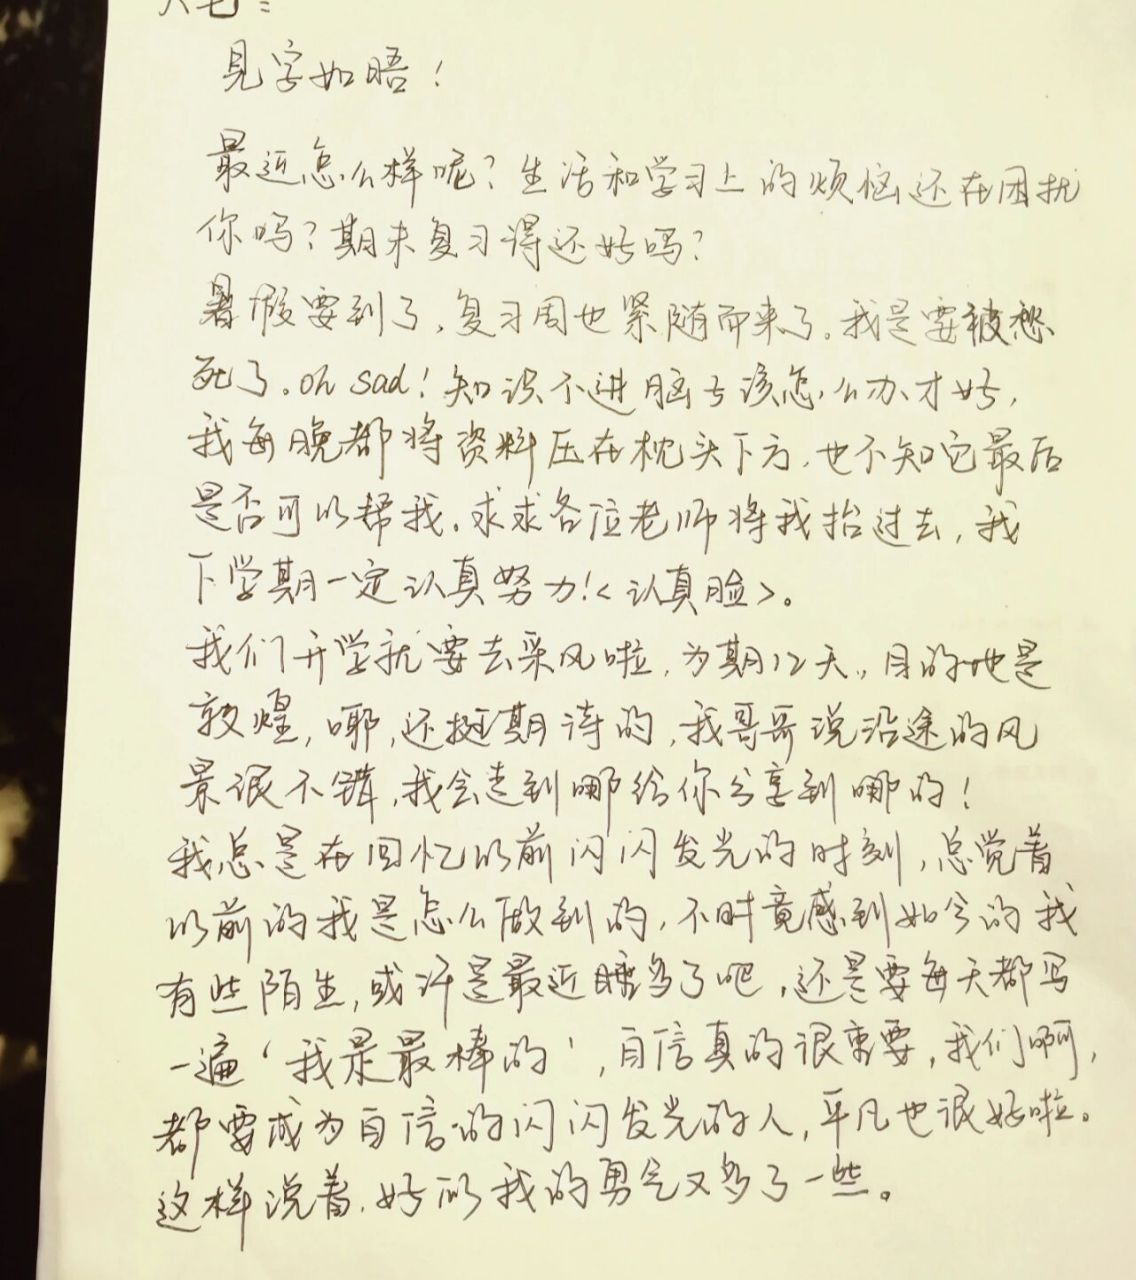 见字如晤！
最近怎么样呢？生活和学习上的烦恼还在困扰
你吗？期末复习得还好吗？
暑假要到了，复习周也紧随而来了。我是要被愁
死了。oh sad！知识不进脑子该怎么办才好，
我每晚都将资料压在枕头下方，也不知它最后
是否可以帮我。求求各位老师将我抬过去，我
下学期一定认真努力！<认真脸>。
我们开学就要去采风啦，为期12天，目的地是
敦煌，嘟，还挺期待的，我哥哥说沿途的风
景很不错，我会走到哪给你分享到哪的！
我总是在回忆以前闪闪发光的时刻，总觉着
以前的我是怎么做到的，不时竟感到如今的我
有些陌生，或许是最近睡多了吧，还是要每天都写
一遍‘我是最棒的’，自信真的很重要，我们啊，
都要成为自信的闪闪发光的人，平凡也很好啦。
这样说着，好似我的勇气又多了一些。